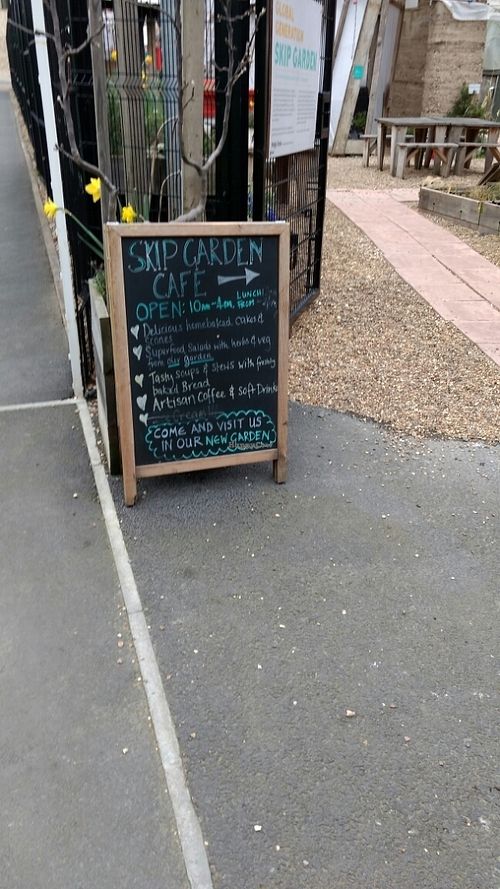 GLOBAL
GENERATION
SKIP GARDEN
SKIP GARDEN
CAFE
LUNCH
OPEN: 10am-4pm, FROM
Delicious homebaked cakes &
scones
Superfood Salads with herbs & veg
from our garden
Tasty soups & stews with freshly
baked Bread
Artisan Coffee & Soft Drinks
COME AND VISIT US
IN OUR NEW GARDEN